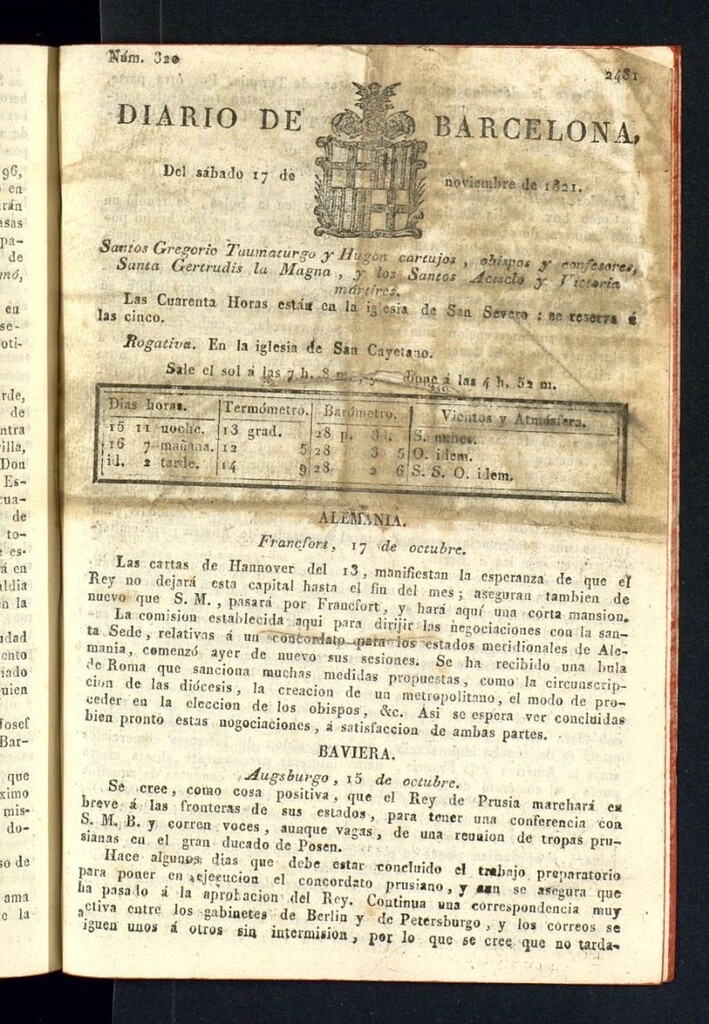 96,
en
rán
asas
pa-
de
mó,
en
se-
oti-
rde,
de
ntra
illa,
Don
Es-
cua-
de
to-
e es-
á en
aldia
n la
idad
ento
nado
uien
Josef
Bar-
que
ximo
mis-
do-
so de
ama
e la
Núm. 320
2481
DIARIO DE BARCELONA,
Del sábado 17 de noviembre de 1821.
Santos Gregorio Taumaturgo y Hugon cartujos, obispos y confesores,
Santa Gertrudis la Magna, y los Santos Acisclo y Victoria
mártires.
Las Cuarenta Horas están en la iglesia de San Severo: se reserva á
las cinco.
Rogativa. En la iglesia de San Cayetano.
Sale el sol á las 7 h. 8 m., y pone á las 4 h. 52 m.
Dias horas. Termómetro. Barómetro. Vientos y Atmósfera.
15 11 noche. 13 grad. 28 p. S. nubes.
16 7 mañana. 12 5 28 3 5 O. idem.
id. 2 tarde. 14 9 28 2 6 S. S. O. idem.
ALEMANIA.
Francfort, 17 de octubre.
Las cartas de Hannover del 13, manifiestan la esperanza de que el
Rey no dejará esta capital hasta el fin del mes; aseguran tambien de
nuevo que S. M., pasará por Francfort, y hará aquí una corta mansion.
La comision establecida aqui para dirijir las negociaciones con la san-
ta Sede, relativas á un concordato para los estados meridionales de Ale-
mania, comenzó ayer de nuevo sus sesiones. Se ha recibido una bula
de Roma que sanciona muchas medidas propuestas, como la circunscrip-
cion de las diócesis, la creacion de un metropolitano, el modo de pro-
ceder en la eleccion de los obispos, &c. Asi se espera ver concluidas
bien pronto estas nogociaciones, á satisfaccion de ambas partes.
BAVIERA.
Augsburgo, 15 de octubre.
Se cree, como cosa positiva, que el Rey de Prusia marchará en
breve á las fronteras de sus estados, para tener una conferencia con
S. M. B. y corren voces, aunque vagas, de una reunion de tropas pru-
sianas en el gran ducado de Posen.
Hace algunos dias que debe estar concluido el trabajo preparatorio
para poner en ejecucion el concordato prusiano, y aun se asegura que
ha pasado á la aprobacion del Rey. Continua una correspondencia muy
activa entre los gabinetes de Berlin y de Petersburgo, y los correos se
iguen unos á otros sin intermision, por lo que se cree que no tarda-